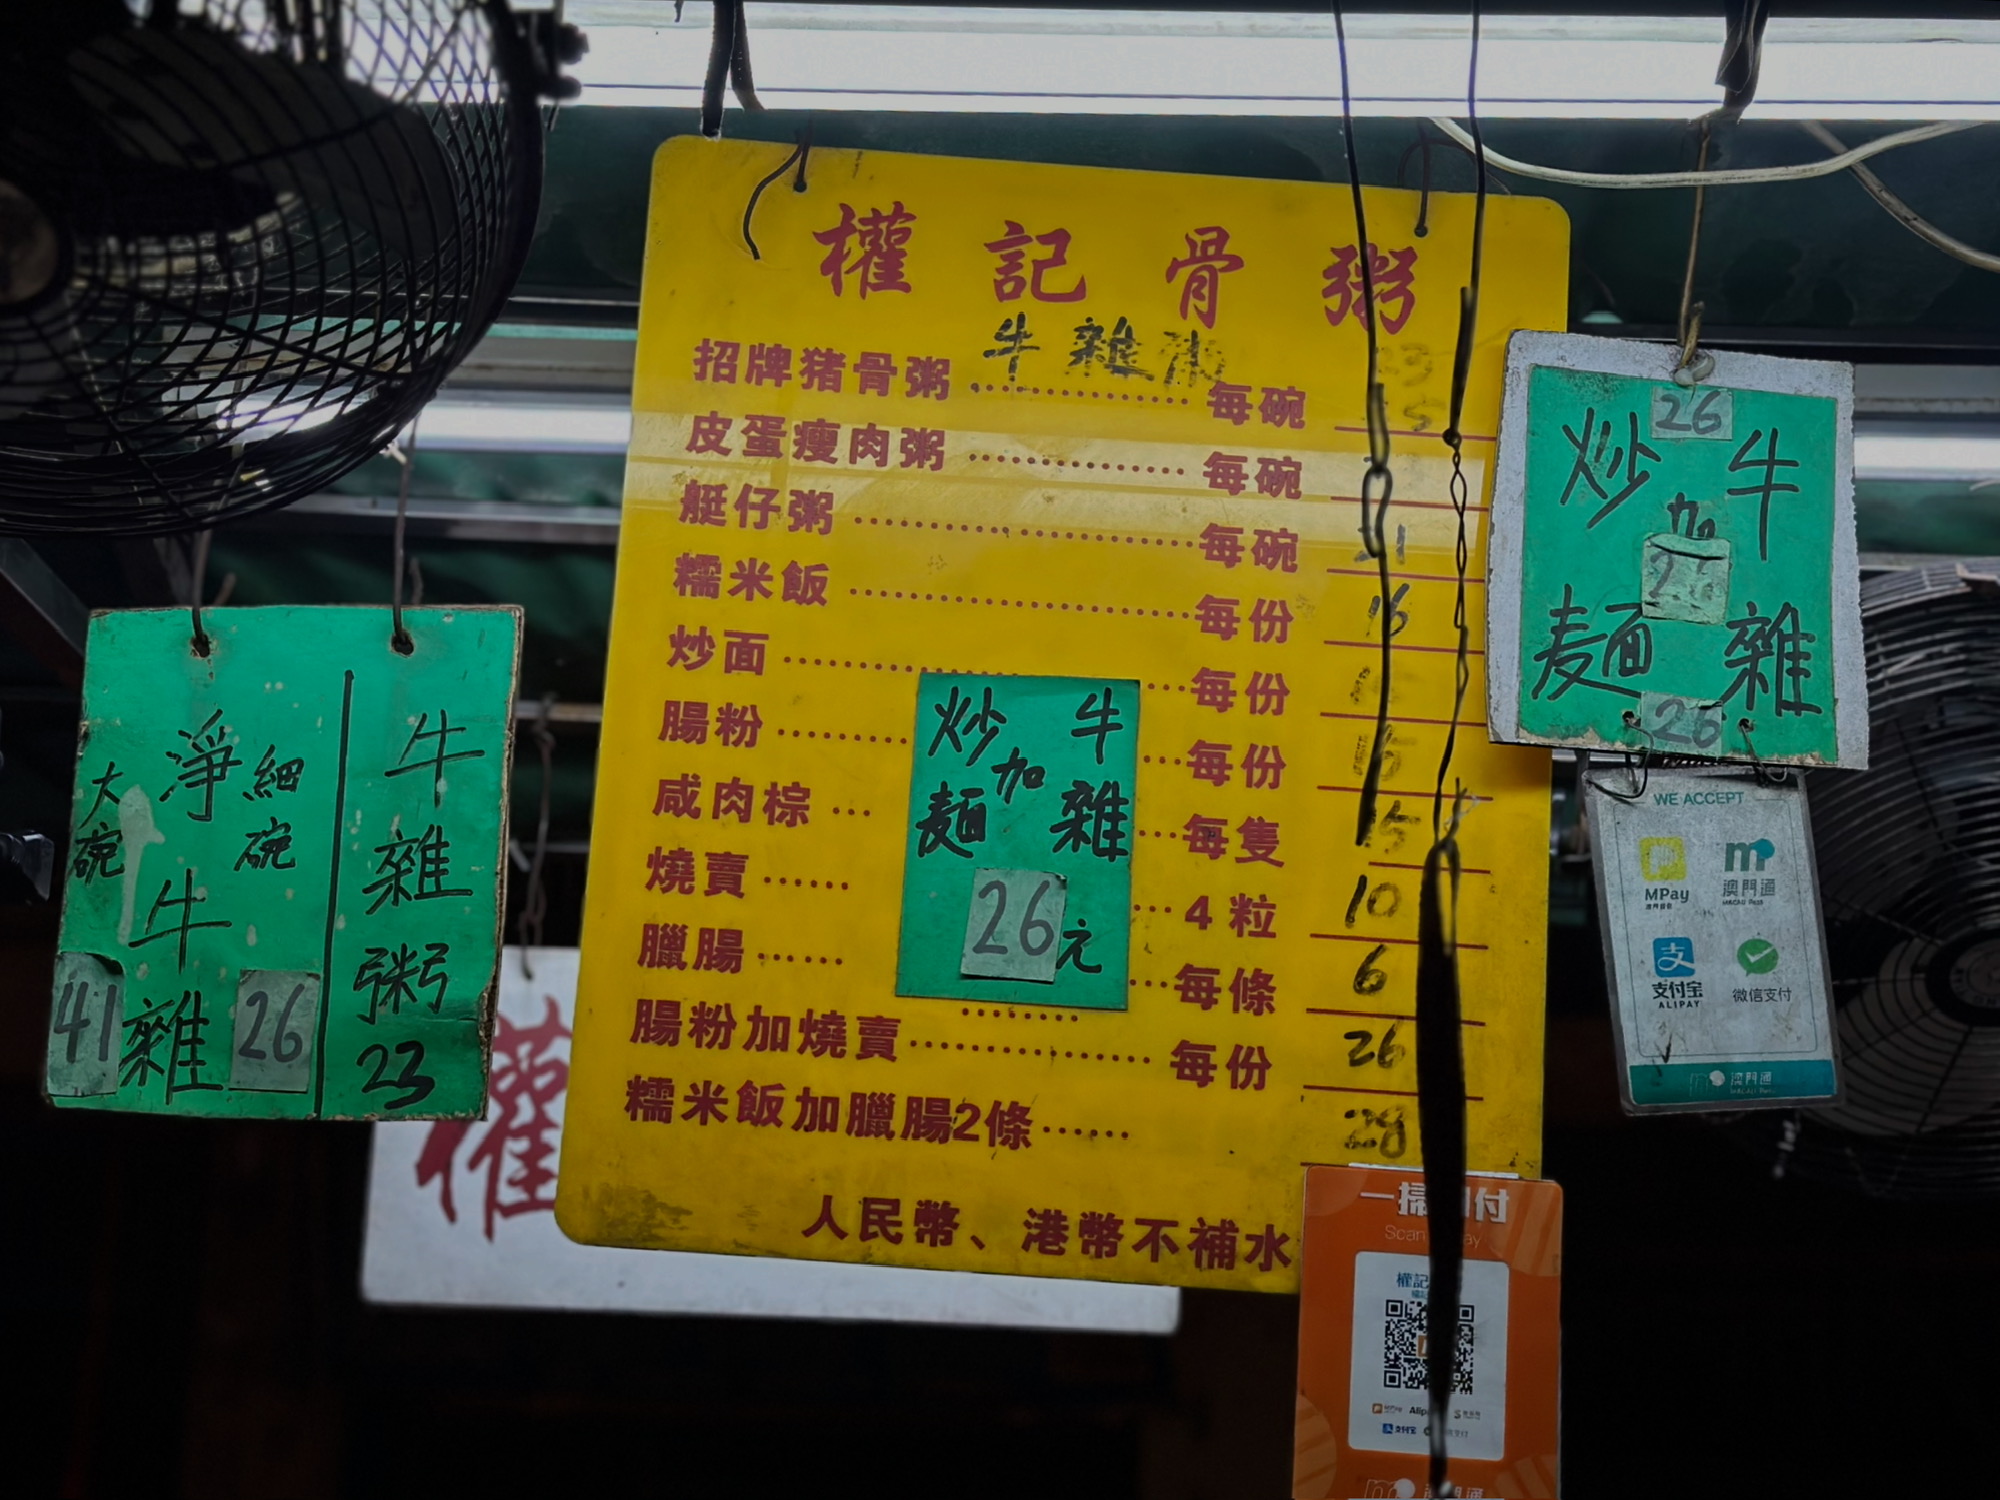 權記骨粥
牛雜粥
招牌猪骨粥 每碗
皮蛋瘦肉粥 每碗
艇仔粥 每碗 21
糯米飯 每份 16
炒面 每份
腸粉 每份
咸肉棕 每隻 15
燒賣 4粒 10
臘腸 每條 6
腸粉加燒賣 每份 26
糯米飯加臘腸2條 28
人民幣、港幣不補水
炒麵加牛雜
26元
大碗 淨牛雜 細碗
41 26
牛雜粥
23
26
炒麵加牛雜
26
WE ACCEPT
MPay
澳門通
MACAU Pass
支付宝
ALIPAY
微信支付
澳門通
權
權記
支付宝
澳門通